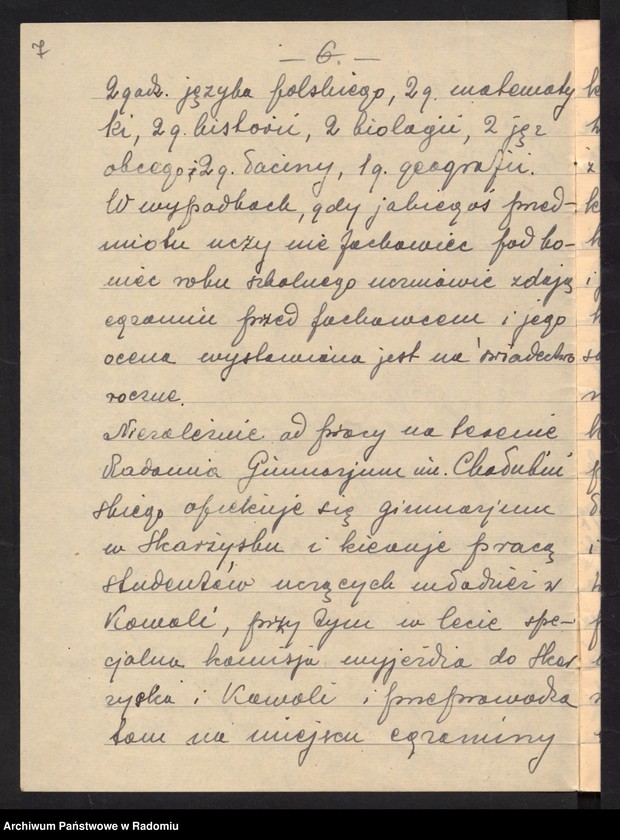 7
- 6. -
2 godz. języka polskiego, 2 g. matematy
ki, 2 g. historii, 2 biologii, 2 jęz
obcego i 2 g. łaciny, 1 g. geografii.
W wypadkach, gdy jakiegoś przed-
miotu uczy nie fachowiec pod ko-
niec roku szkolnego uczniowie zdają
egzamin przed fachowcem i jego
ocena wystawiona jest na świadectwo
roczne.
Niezależnie od pracy na terenie
Radomia Gimnazjum im. Chałubiń
skiego opiekuje się gimnazjum
w Skarżysku i kieruje pracą
studentów uczących młodzież w
Kowali, przy tym w lecie spe-
cjalna komisja wyjeżdża do Skar
żyska i Kowali i przeprowadza
tam na miejscu egzaminy
Archiwum Państwowe w Radomiu